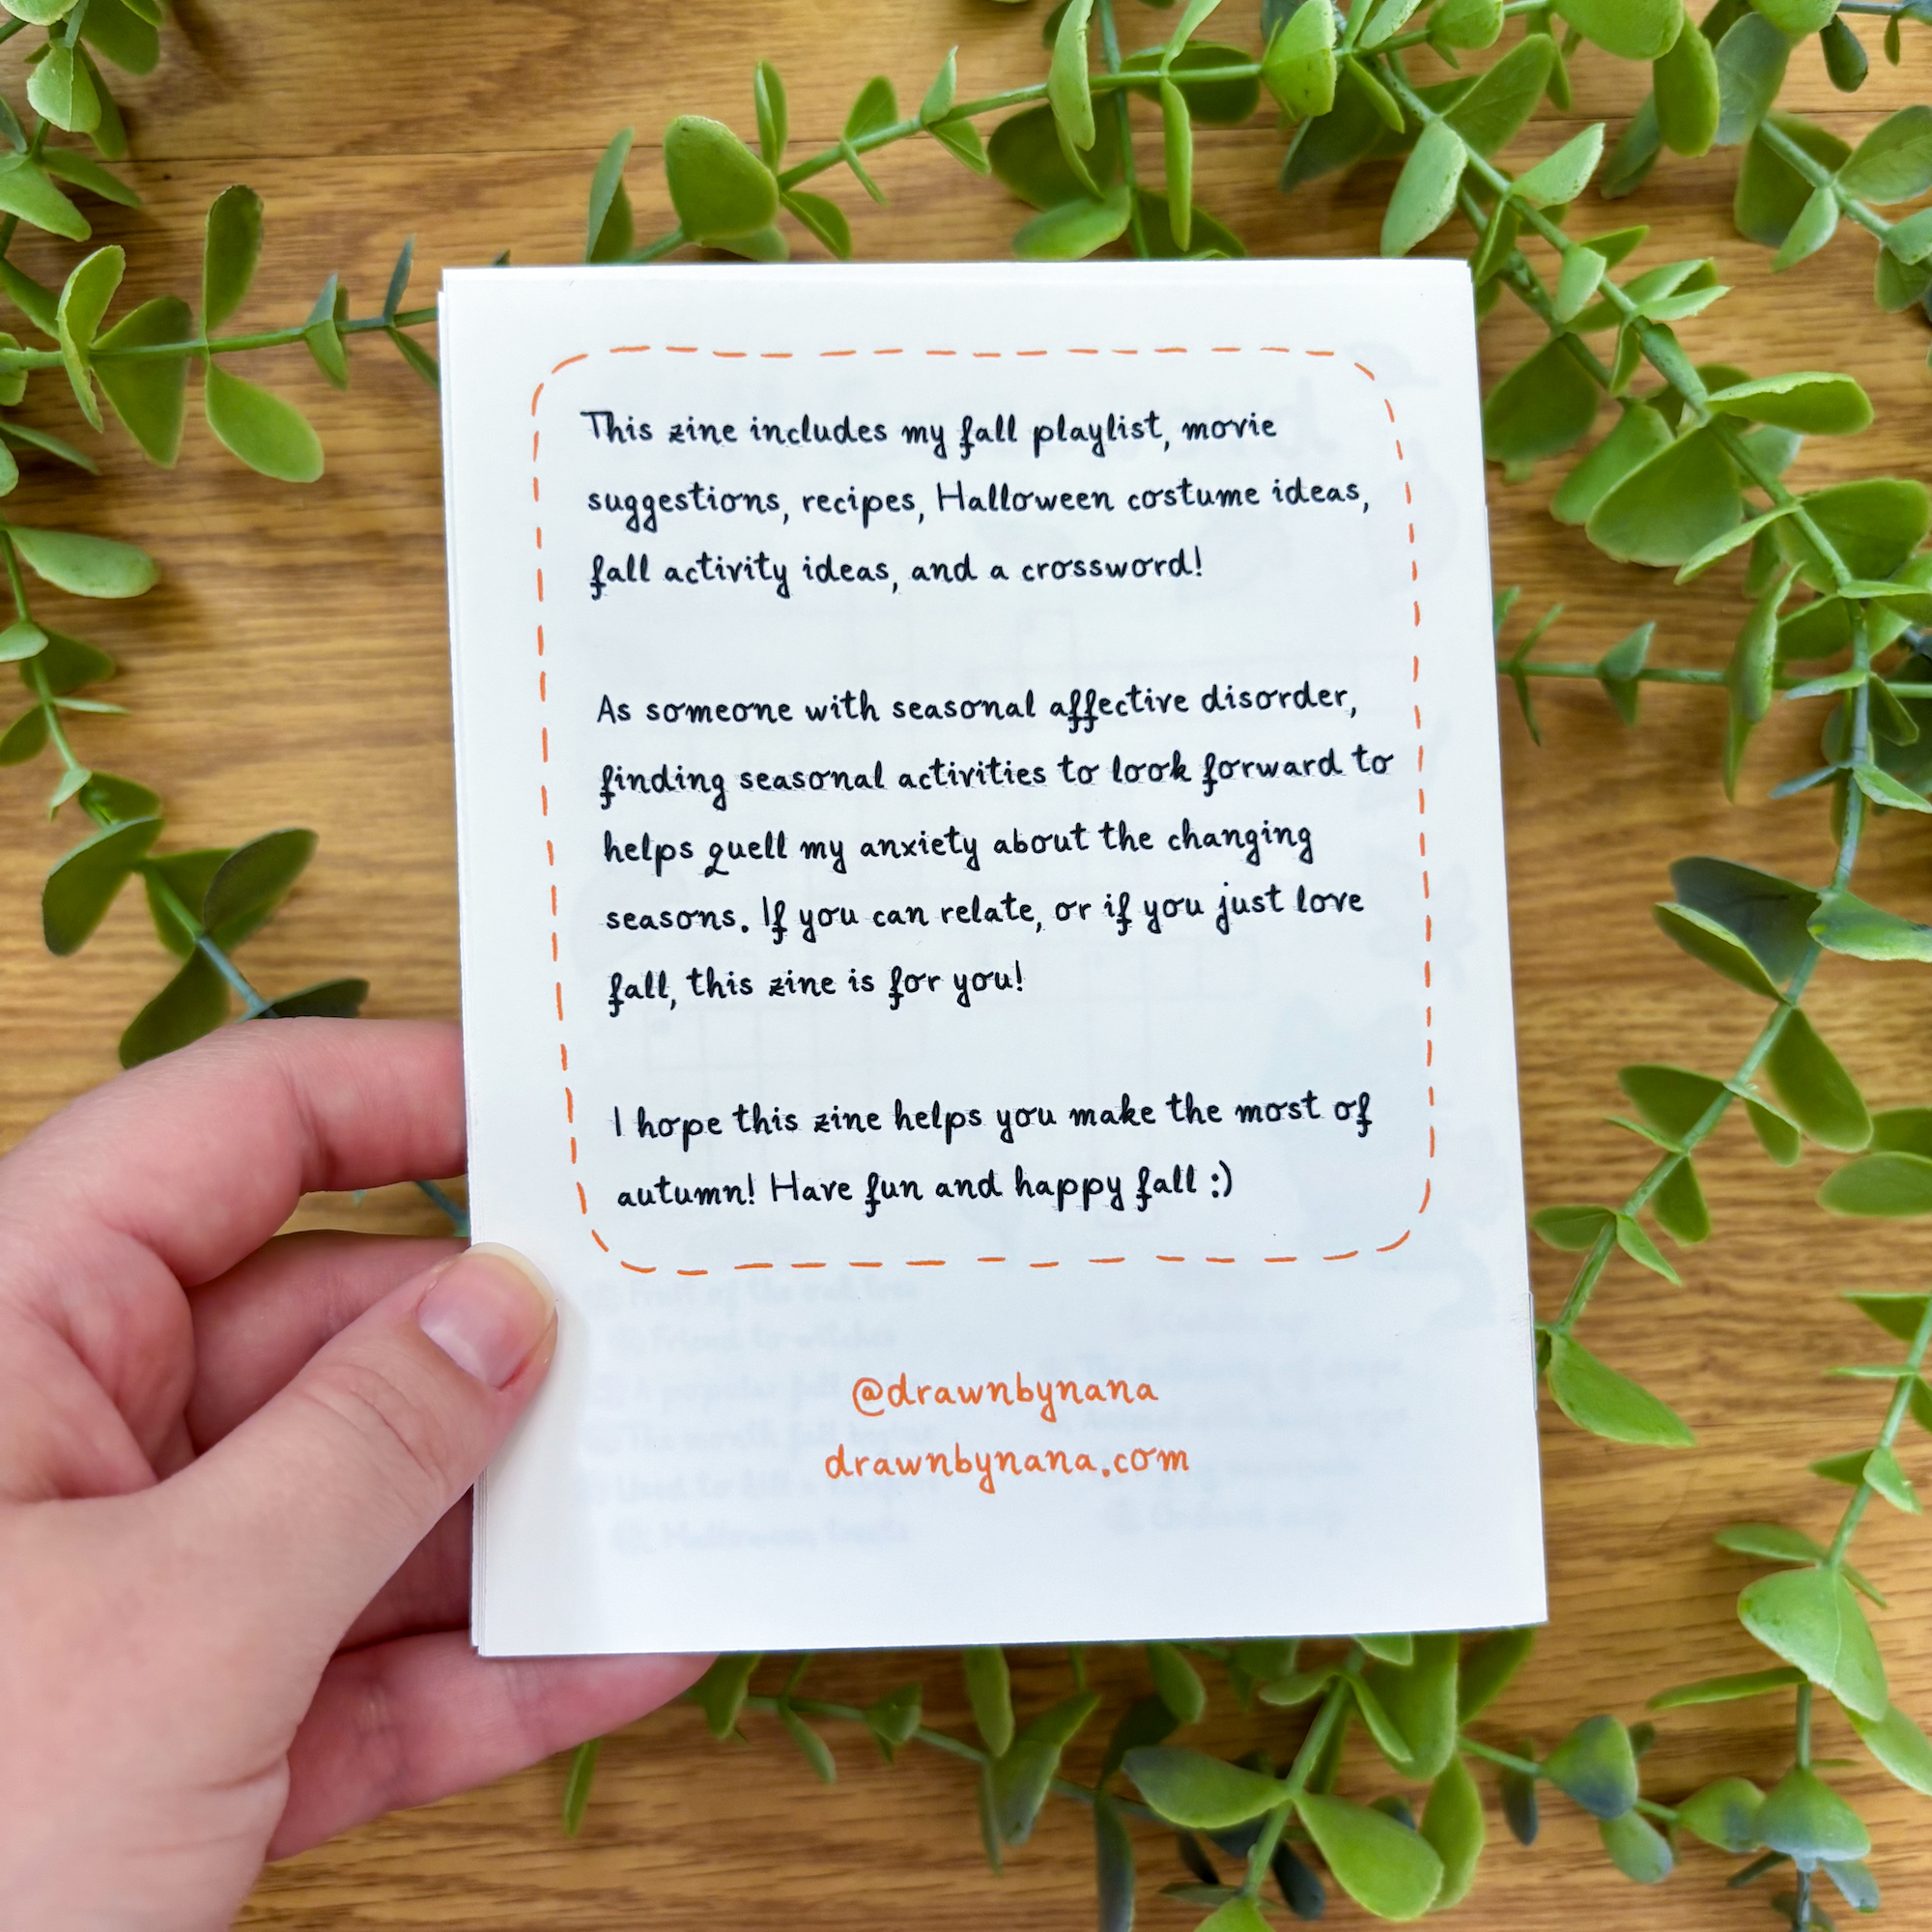 This zine includes my fall playlist, movie
suggestions, recipes, Halloween costume ideas,
fall activity ideas, and a crossword!
As someone with seasonal affective disorder,
finding seasonal activities to look forward to
helps quell my anxiety about the changing
seasons. If you can relate, or if you just love
fall, this zine is for you!
I hope this zine helps you make the most of
autumn! Have fun and happy fall :)
@drawnbynana
drawnbynana.com
Fruit of the oak tree
Friend to witches
A popular fall
The month fall begins
Halloween treats